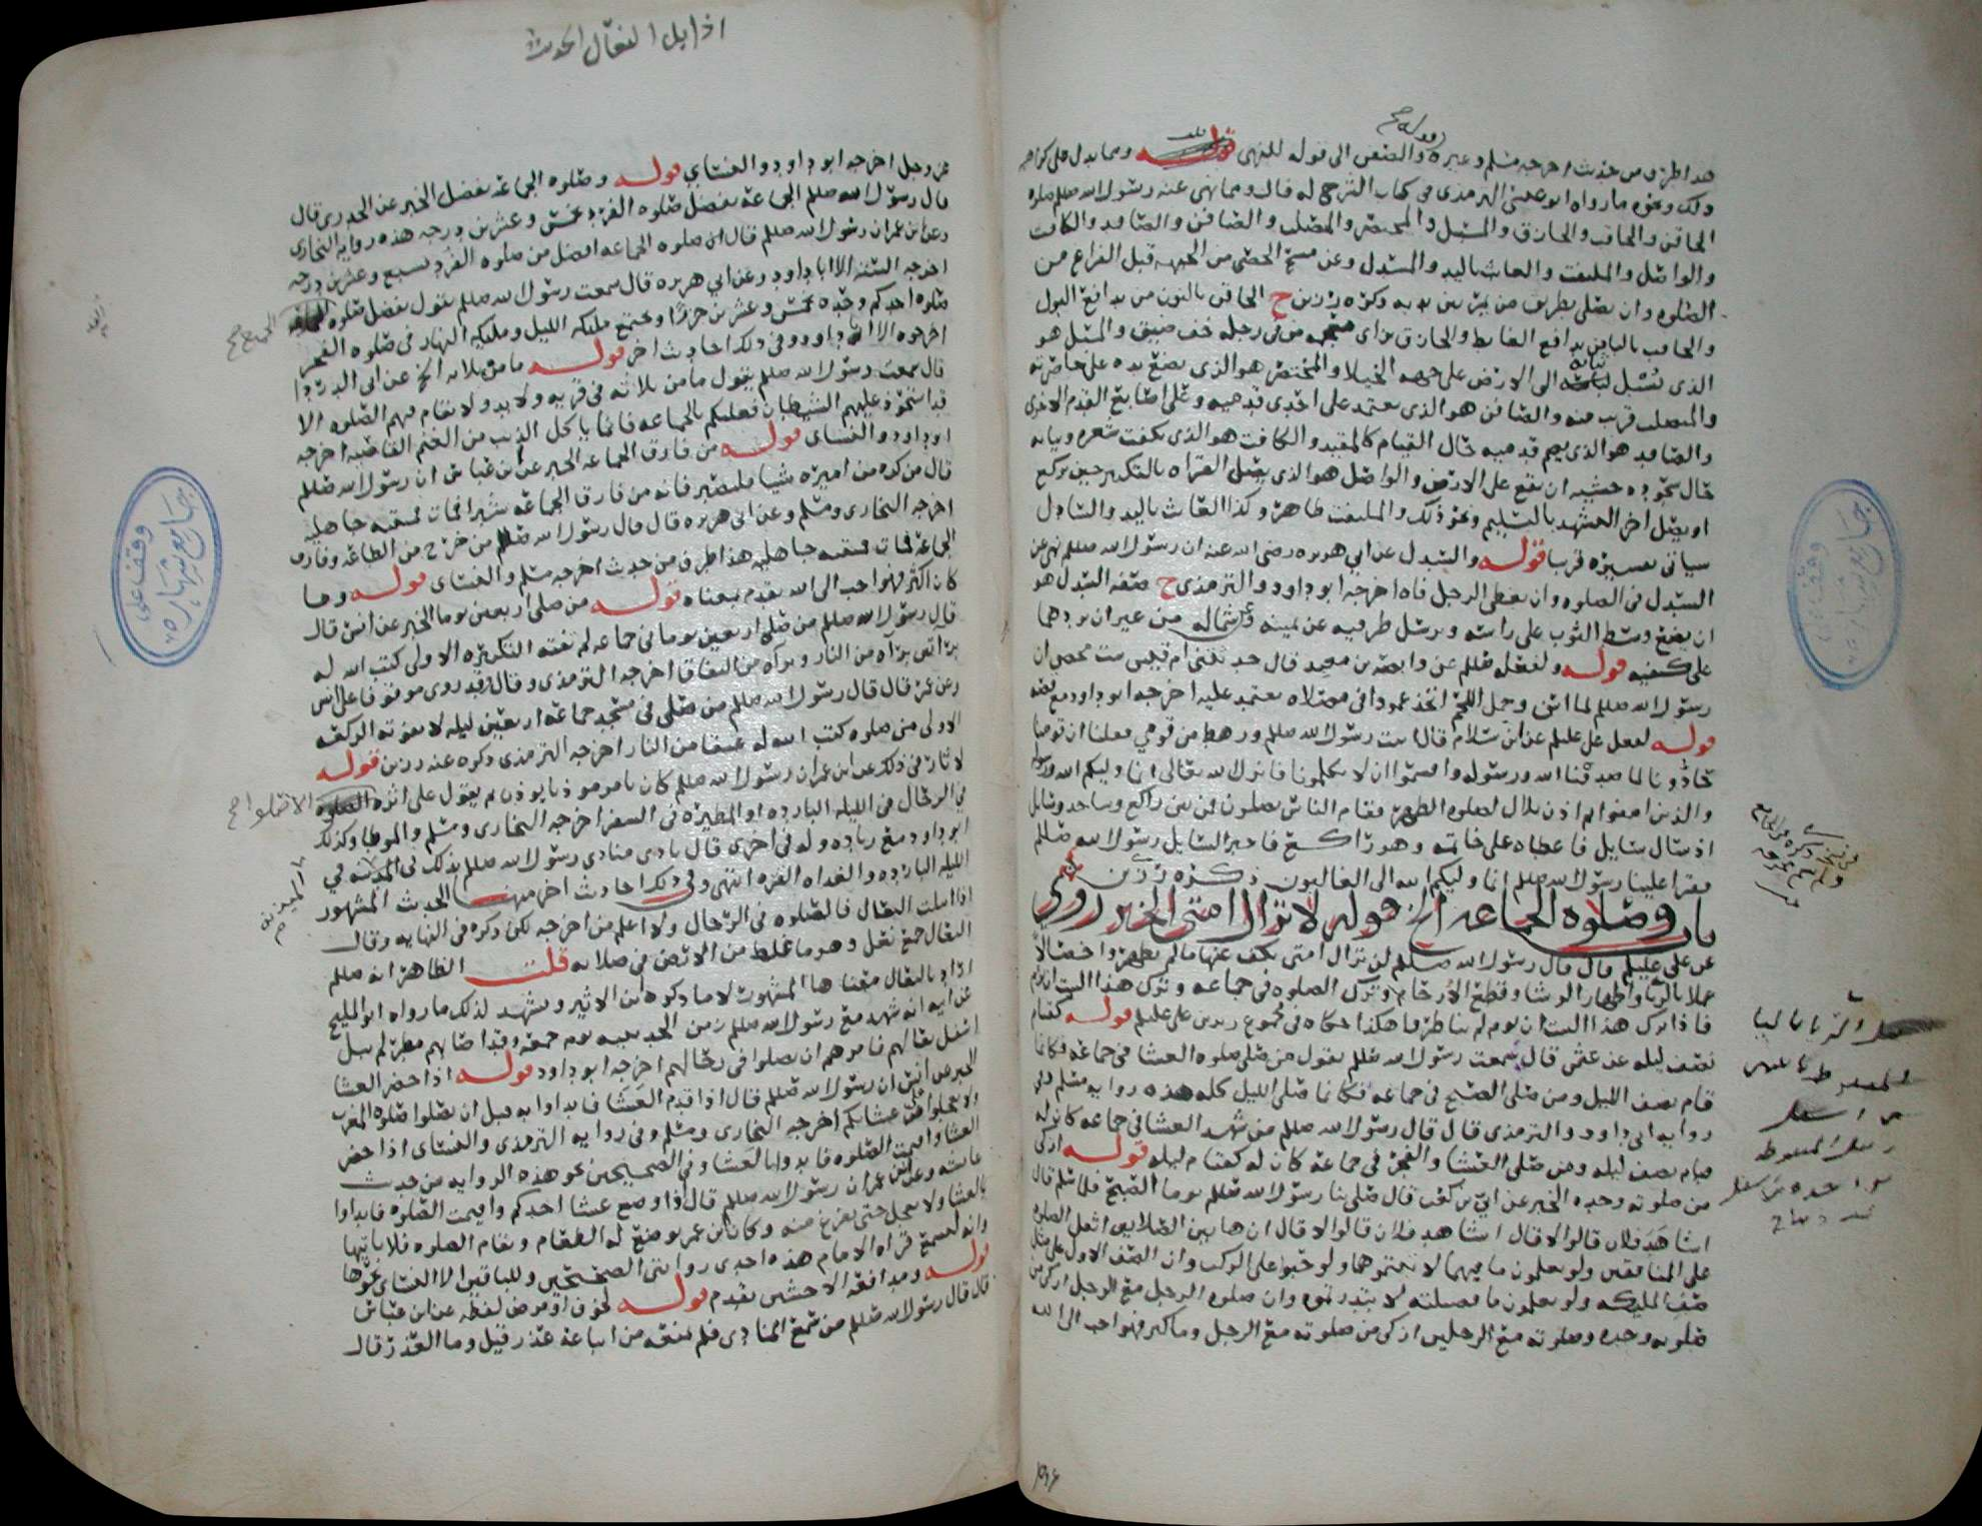 هذا طرف من حديث اخرجه مسلم وغيره والصفن الى قوله للنهى قوله ومما يدل على كراهه
ذلك ونحوه ما رواه ابو عيسى الترمذى فى كتاب الترجمه له قال ومما نهى عنه رسول الله صللم صلوه
الحاقن والحاقب والحازق والمسبل والمختصر والمصلب والصافن والصافد والكافت
والواصل والملتفت والعابث باليد والمسدل وعن مسح الحصى من الجبهه قبل الفراغ من
الصلوه وان يصلى بطريق من يمر بين يديه ذكره رزين ح الحاقن بالنون من يدافع البول
والحاقب بالبا من يدافع الغايط والحازق براى من فى رجله خف ضيق والمسبل هو
الذى يسبل ثيابه الى الارض على جهه الخيلا والمختصر هو الذى يضع يده على خاصرته
والمصلب قريب منه والصافن هو الذى يعتمد على احدى قدميه وعلى اصابع القدم الاخرى
والصافد هو الذى يضم قدميه حال القيام كالمقيد والكافت هو الذى يكفت شعره وثيابه
حال سجوده خشيه ان يقع على الارض والواصل هو الذى يصل القراه بالتكبير حين يركع
او يصل اخر التشهد بالتسليم ونحو ذلك والملتفت ظاهر وكذا العابث باليد والسادل
سياتى تفسيره قريبا قوله والسدل عن ابي هريره رضى الله عنه ان رسول الله صللم نهى عن
السدل فى الصلوه وان يغطى الرجل فاه اخرجه ابو داود والترمذى ح صفه السدل هو
ان يضع وسط الثوب على راسه ويرسل طرفيه عن يمينه وشماله من غير ان يردهما
على كتفيه قوله ولفعله صللم عن وابصه بن معبد قال حدثتنى ام قيس بنت محصن ان
رسول الله صللم لما اسن وحمل اللحم اتخذ عمودا فى مصلاه يعتمد عليه اخرجه ابو داود مع قصه
قوله لفعل على عليلم عن ابن سلام قال اتيت رسول الله صللم ورهط من قومي فقلنا ان قومنا
حادونا لما صدقنا الله ورسوله واقسموا ان لا يكلمونا فانزل الله تعالى انما وليكم الله ورسوله
والذين امنوا ثم اذن بلال لصلوه الظهر فقام الناس يصلون فمن بين راكع وساجد وسايل
اذ سال سايل فاعطاه على خاتمه وهو راكع فاخبر السايل رسول الله صللم
فقرا علينا رسول الله صللم انما وليكم الله الى الغالبون ذكره رزين
باب وصلوه الجماعه الخ قوله لا تزال امتى الخبر روى
عن على عليلم قال قال رسول الله صللم لن تزال امتى يكف عنها ما لم يظهروا خصالا
عملا بالربا واظهار الرشا وقطع الارحام وترك الصلوه فى جماعه وترك هذا البيت ان يؤم
فاذا ترك هذا البيت ان يوم لم يناظروا هكذا حكاه فى مجموع زيد بن على عليلم قوله كقيام
نصف ليله عن عثمن قال سمعت رسول الله صللم يقول من صلى صلوه العشا فى جماعه فكانما
قام نصف الليل ومن صلى الصبح فى جماعه فكانما صلى الليل كله هذه روايه مسلم وفى
روايه ابى داود والترمذى قال قال رسول الله صللم من شهد العشا فى جماعه كان له
قيام نصف ليله ومن صلى العشا والفجر فى جماعه كان له كقيام ليله قوله ازكى
من صلوته وحده الخبر عن ابي بن كعب قال صلى بنا رسول الله صللم يوما الصبح فلما سلم قال
اشاهد فلان قالوا لا قال اشاهد فلان قالوا لا قال ان هاتين الصلاتين اثقل الصلوه
على المنافقين ولو يعلمون ما فيهما لاتيتموهما ولو حبوا على الركب وان الصف الاول على مثل
صف المليكه ولو يعلمون ما فضيلته لابتدرتموه وان صلوه الرجل مع الرجل ازكى من
صلوته وحده وصلوته مع الرجلين ازكى من صلوته مع الرجل وما كثر فهو احب الى الله
وقف
جامع شهاره
اذا ابتل النعال الحديث
عز وجل اخرجه ابو داود والنساي قوله وصلوه الجماعه تفضل الخبر عن الخدرى قال
قال رسول الله صللم الجماعه تفضل صلوه الفرد بخمس وعشرين درجه هذه روايه البخارى
وعن ابن عمر ان رسول الله صللم قال ان صلوه الجماعه افضل من صلوه الفرد بسبع وعشرين درجه
اخرجه السته الا ابا داود وعن ابي هريره قال سمعت رسول الله صللم يقول تفضل صلوه الجميع صح
صلوه احدكم وحده بخمس وعشرين جزءا وتجتمع مليكه الليل ومليكه النهار فى صلوه الفجر
اخرجوه الا ابا داود وفى ذلك احاديث اخر قوله ما من ثلاثه الخ عن ابى الدردا
قال سمعت رسول الله صللم يقول ما من ثلاثه فى قريه ولا بدو لا تقام فيهم الصلوه الا
قد استحوذ عليهم الشيطان فعليكم بالجماعه فانما ياكل الذيب من الغنم القاصيه اخرجه
ابو داود والنساى قوله من فارق الجماعه الخبر عن ابن عباس ان رسول الله صللم
قال من كره من اميره شيا فليصبر فانه من فارق الجماعه شبرا فمات فميته جاهليه
اخرجه البخارى ومسلم وعن ابى هريره قال قال رسول الله صللم من خرج من الطاعه وفارق
الجماعه فمات فميته جاهليه هذا طرف من حديث اخرجه مسلم والنساى قوله وما
كان اكثر فهو احب الى الله تقدم معناه قوله من صلى اربعين يوما الخبر عن انس قال
قال رسول الله صللم من صلى اربعين يوما فى جماعه لم تفته التكبيره الاولى كتب الله له
براتين براه من النار وبراه من النفاق اخرجه الترمذى وقال قد روى موقوفا على انس
وعن عمر قال قال رسول الله صللم من صلى فى مسجد جماعه اربعين ليله لا تفوته الركعه
الاولى من صلوه كتب الله له عتقا من النار اخرجه الترمذى ذكره عنه رزين قوله
لاثار فى ذلك عن ابن عمر ان رسول الله صللم كان يامر موذنا يوذن ثم يقول على اثره الا صلوا صح
في الرحال فى الليله البارده او المطيره فى السفر اخرجه البخارى ومسلم والموطا وكذلك
ابو داود مع زياده وله فى اخرى قال نادى منادى رسول الله صللم بذلك فى المدينه في
الليله البارده والغداه القره انتهى وفى ذلك احاديث اخر منها الحديث المشهور
اذا ابتلت النعال فالصلوه فى الرحال ولا اعلم من اخرجه لكن ذكره فى النهايه وقال
النعال جمع نعل وهو ما غلظ من الارض فى صلابه قلت الظاهر انه صللم
اراد بالنعال معناها المشهور لا ما ذكره ابن الاثير ويشهد لذلك ما رواه ابو المليح
عن ابيه انه شهد مع رسول الله صللم زمن الحديبيه يوم جمعه وقد اصابهم مطر لم يبل
اسفل نعالهم فامرهم ان يصلوا فى رحالهم اخرجه ابو داود قوله اذا حضر العشا
الخبر عن انس ان رسول الله صللم قال اذا قدم العشا فابداوا به قبل ان تصلوا صلوه المغرب
ولا تعجلوا عن عشايكم اخرجه البخارى ومسلم وفى روايه الترمذى والنساى اذا حضر
العشا واقيمت الصلوه فابدوا بالعشا وفى الصحيحين نحو هذه الروايه من حديث
عايشه وعن ابن عمر ان رسول الله صللم قال اذا وضع عشا احدكم واقيمت الصلوه فابداوا
بالعشا ولا يعجل حتى يفرغ منه وكان ابن عمر يوضع له الطعام وتقام الصلوه فلا ياتيها
وانه ليسمع قراه الامام هذه احدى روايتى الصحيحين وللباقين الا النساى نحوها
قوله ومدافعه الاخبثين تقدم قوله لخوف او مرض لفظه عن ابن عباس
قال قال رسول الله صللم من سمع المنادى فلم يمنعه من اتباعه عذر قيل وما العذر قال
وقف على
جامع شهاره